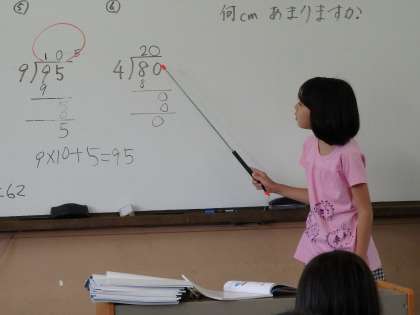 ⑤
⑥
何cm あまりますか
10…5
9)95
9
5
5
9×10+5=95
20
4)80
8
0
0
0
=62